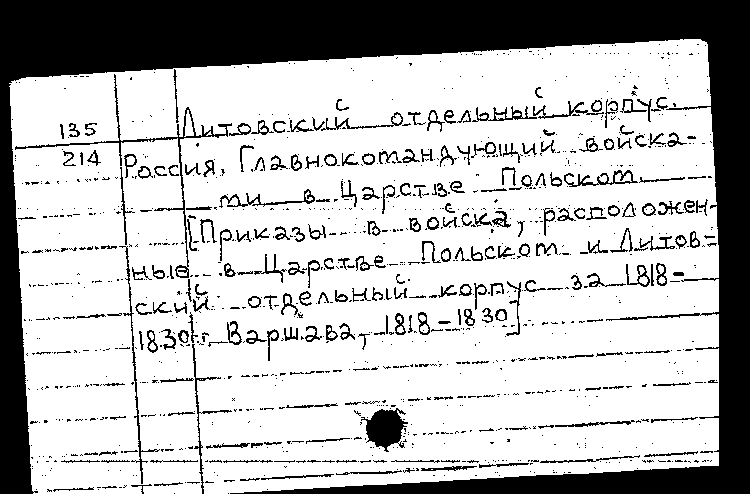 135 Литовский отдельный корпус.
214 Россия. Главнокомандующий войска-
ми в Царстве Польском.
[Приказы в войска, расположен-
ные в Царстве Польском и Литов-
ский отдельный корпус за 1818-
1830 г. Варшава, 1818-1830]